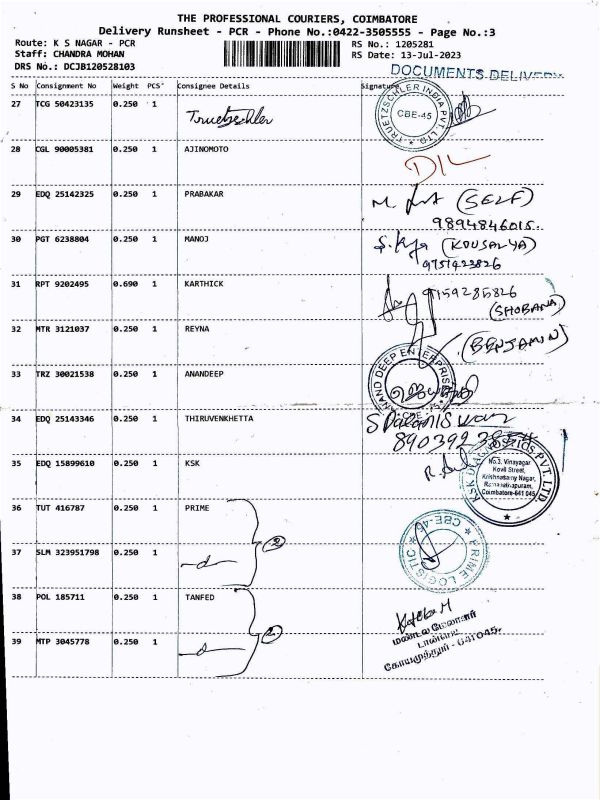 THE PROFESSIONAL COURIERS, COIMBATORE
Delivery Runsheet - PCR - Phone No.:0422-3505555 - Page No.:3
Route: K S NAGAR - PCR
Staff: CHANDRA MOHAN
DRS No.: DCJB120528103
RS No.: 1205281
RS Date: 13-Jul-2023
DOCUMENTS DELIVERY
S No Consignment No Weight PCS Consignee Details Signature
27 TCG 50423135 0.250 1 Truetzschler
TRUETZSCHLER INDIA PVT. LTD.
CBE-45
28 CGL 90005381 0.250 1 AJINOMOTO
D/L
29 EDQ 25142325 0.250 1 PRABAKAR
(SELF)
9894846015
30 PGT 6238804 0.250 1 MANOJ
(KOUSALYA)
9751423826
31 RPT 9202495 0.690 1 KARTHICK
9159285826
(SHOBANA)
32 MTR 3121037 0.250 1 REYNA
(BENJAMIN)
33 TRZ 30021538 0.250 1 ANANDEEP
ANAND DEEP ENTERPRISE
34 EDQ 25143346 0.250 1 THIRUVENKHETTA
35 EDQ 15899610 0.250 1 KSK
KSK DIAGNOSTICS PVT. LTD.
No.3, Vinayagar
Kovil Street,
Krishnasamy Nagar,
Ramanathapuram,
Coimbatore-641 045
36 TUT 416787 0.250 1 PRIME
37 SLM 323951798 0.250 1 -d-
2
PRIME LOGISTIC
CBE-45
38 POL 185711 0.250 1 TANFED
39 MTP 3045778 0.250 1 -d-
2
கோயமுத்தூர் - 641045.